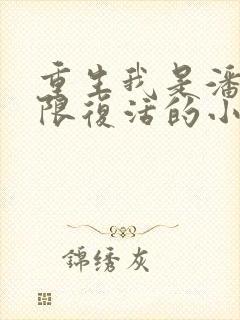 重生我是潘
限復活的小
錦绣灰